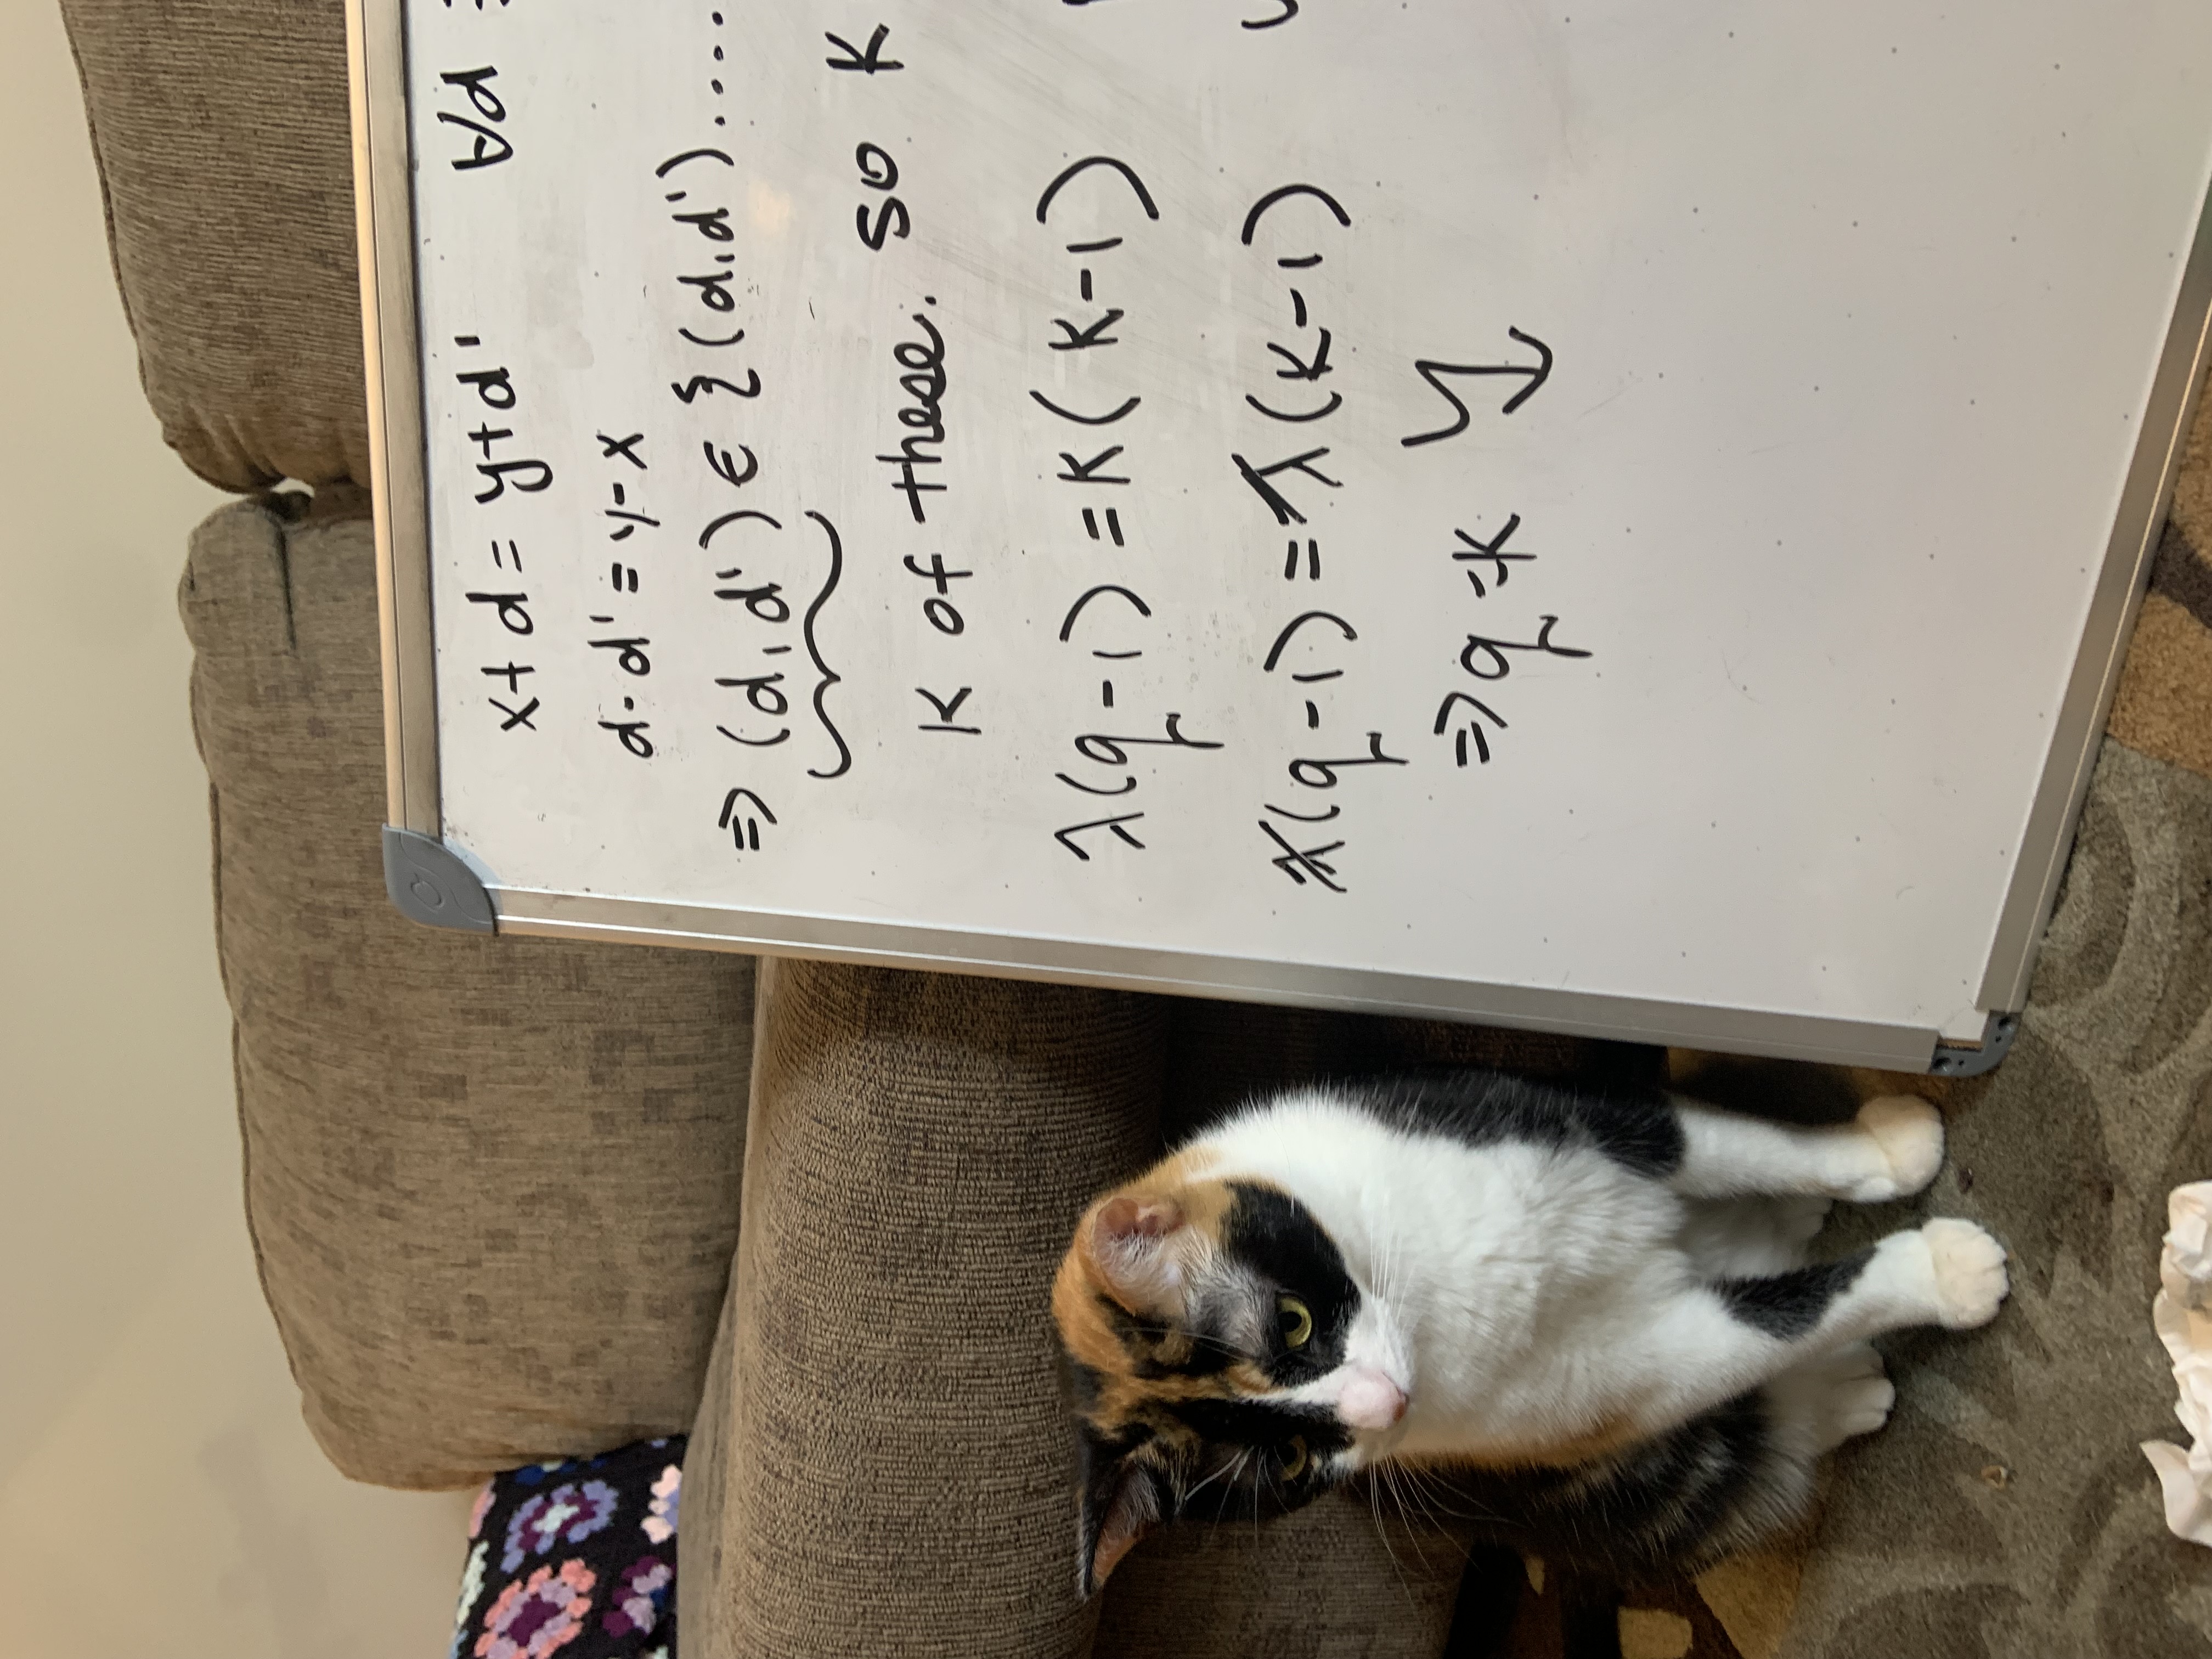 x+d=y+d' ∀d
d-d'=y-x
⇒ (d,d') ∈ {(d,d')....
K of these. so K
λ(q-1)=K(K-1)
λ(q-1)=λ(K-1)
⇒q=K ↯